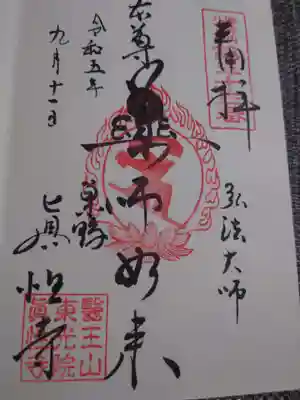 奉拝
弘法大師
本尊薬師如来
巣鴨
眞性寺
令和五年
九月十一日
醫王山
東光院
眞性寺